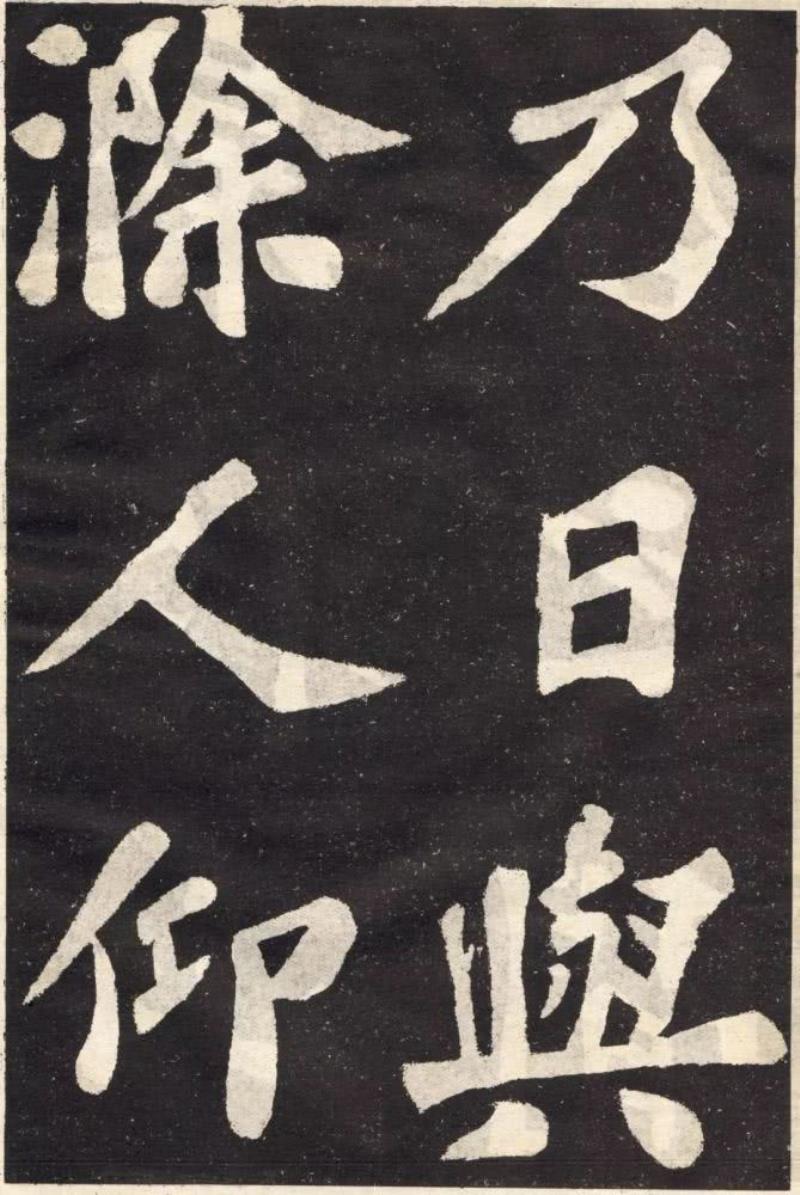 乃日與
滁人仰